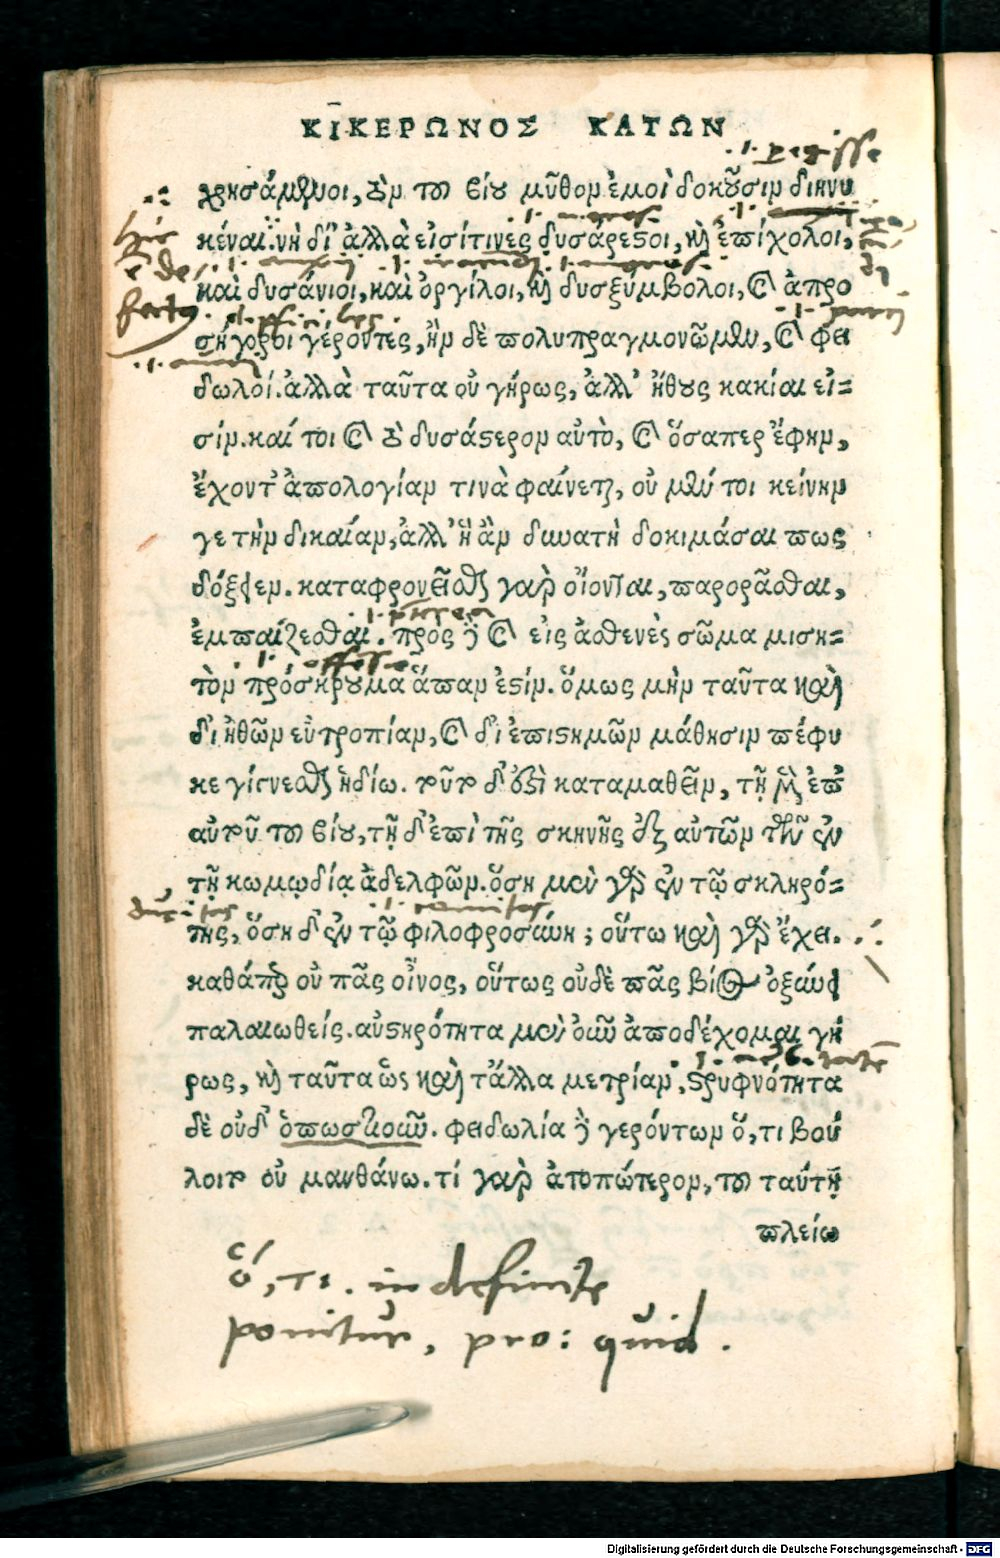 ΚΙΚΕΡΩΝΟΣ ΚΑΤΩΝ
.i. peregisse
χρησάμενοι, τὸν τοῦ βίου μῦθον ἐμοὶ δοκοῦσιν διηνυ
κέναι. νὴ δί' ἀλλὰ εἰσίτινες δυσάρεστοι, καὶ ἐπίχολοι,
Hic
καὶ δυσάνιοι, καὶ ὀργίλοι, καὶ δυσξύμβολοι, καὶ ἀπρο
.i. difficiles.
σήγοροι γέροντες, ἢν δὲ πολυπραγμονῶμεν, καὶ φει
δωλοί. ἀλλὰ ταῦτα οὐ γήρως, ἀλλ' ἤθους κακίαι εἰ=
σίν. καί τοι καὶ τὸ δυσάρεστον αὐτὸ, καὶ ὅσαπερ ἔφην,
ἔχοντ' ἀπολογίαν τινὰ φαίνεται, οὐ μέν τοι κείνην
γε τὴν δικαίαν, ἀλλ' ἣ ἂν δυνατὴ δοκιμάσαι πως
δόξειεν. καταφρονεῖσθαι γὰρ οἴονται, παρορᾶσθαι,
ἐμπαίζεσθαι. πρὸς δὲ καὶ εἰς ἀσθενὲς σῶμα μιση=
τὸν πρόσκρουμα ἅπαν ἐστίν. ὅμως μὴν ταῦτα καὶ
δι' ἠθῶν εὐτροπίαν, καὶ δι' ἐπιστημῶν μάθησιν πέφυ
κε γίγνεσθαι ἡδίω. τοῦτο δ' ἔστι καταμαθεῖν, τῇ μὲν ἐπ'
αὐτοῦ τοῦ βίου, τῇ δ' ἐπὶ τῆς σκηνῆς ἐξ αὐτῶν τῶν ἐν
τῇ κωμῳδίᾳ ἀδελφῶν. ὅση μὲν γὰρ ἐν τῷ σκληρό=
.i. comitas
της, ὅση δ' ἐν τῷ φιλοφροσύνη; οὕτω καὶ γὰρ ἔχει.
καθάπερ οὐ πᾶς οἶνος, οὕτως οὐδὲ πᾶς βίος ὀξύνει
παλαιωθείς. αὐστηρότητα μὲν οὖν ἀποδέχομαι γή
ρως, καὶ ταῦτα ὡς καὶ τἄλλα μετρίαν, στρυφνότητα
δὲ οὐδ' ὁπωστιοῦν. φειδωλία δὲ γερόντων ὅ, τι βού
λοιτο οὐ μανθάνω. τί γὰρ ἀτοπώτερον, τοῦ ταύτῃ
πλείω
ὅ, τι. indefinite
ponitur, pro: quid.
Digitalisierung gefördert durch die Deutsche Forschungsgemeinschaft - DFG